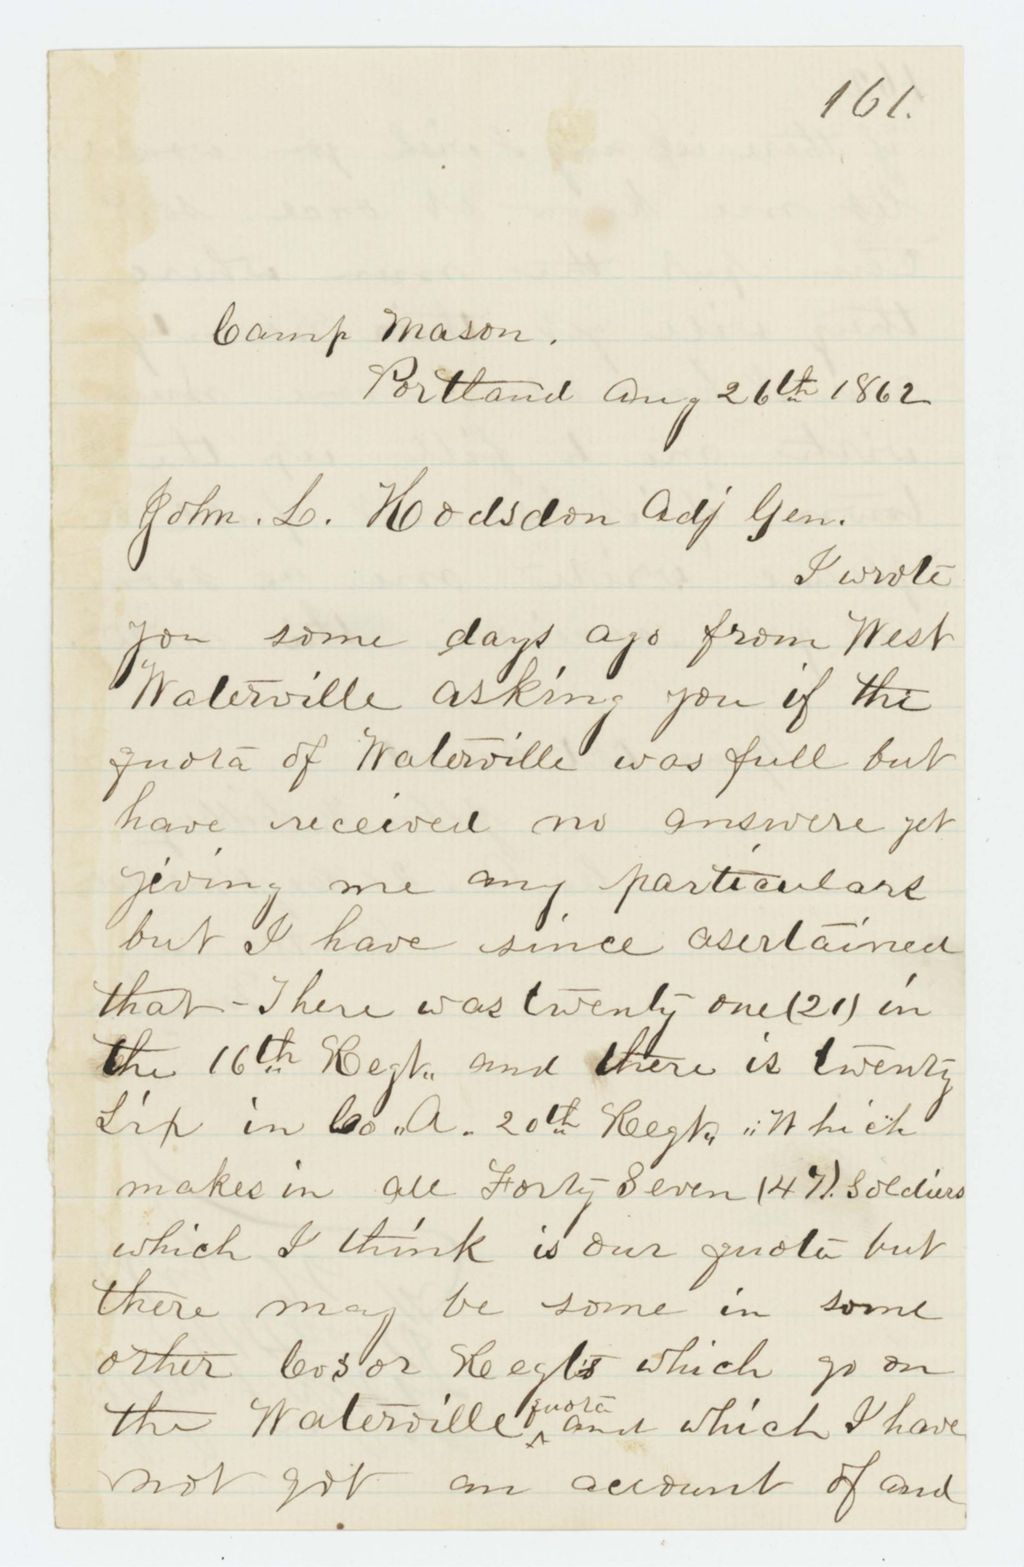 161.
Camp Mason.
Portland Aug 26th 1862
John. L. Hodsdon Adj Gen.
I wrote
you some days ago from West
Waterville asking you if the
quota of Waterville was full but
have received no answere yet
giving me any particulars
but I have since asertained
that - There was twenty one (21) in
the 16th Regt. and there is twenty
Six in Co. "A". 20th Regt. "Which
makes in all Forty Seven (47). Soldiers
which I think is our quota but
there may be some in some
other Co's or Regt's which go on
the Waterville ^quota and which I have
not got an account of and